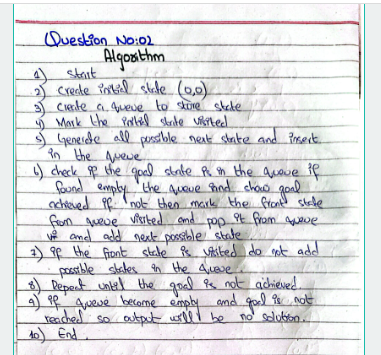 Question No:02
Algorithm
1) Start
2) Create initial state (0,0)
3) Create a queue to store state
4) Mark the initial state visited
5) Generate all possible next state and insert
in the queue
6) check if the goal state is in the queue if
found empty the queue and show goal
achieved if not then mark the front state
from queue visited and pop it from queue
and add next possible state
7) if the front state is visited do not add
possible states in the queue.
8) Repeat until the goal is not achieved.
9) if queue become empty and goal is not
reached so output will be no solution.
10) End.